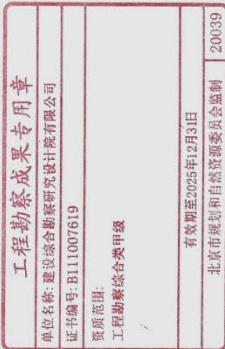 工程勘察成果专用章
单位名称:建设综合勘察研究设计院有限公司
证书编号:B111007619
资质范围:
工程勘察综合类甲级
有效期至2025年12月31日
北京市规划和自然资源委员会监制 20039